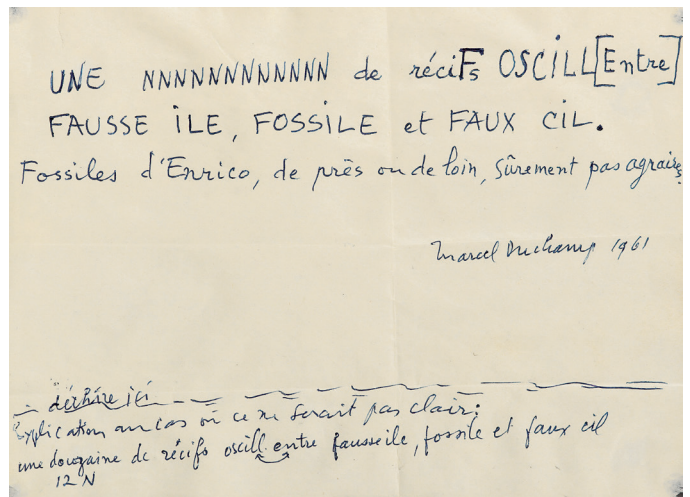 UNE NNNNNNNNNNNN de récifs OSCILL[Entre]
FAUSSE ILE, FOSSILE et FAUX CIL.
Fossiles d'Enrico, de près ou de loin, sûrement pas agraires.
Marcel Duchamp 1961
déchire ici
Explication au cas où ce ne serait pas clair:
une douzaine de récifs oscill entre fausse ile, fossile et faux cil
12 N